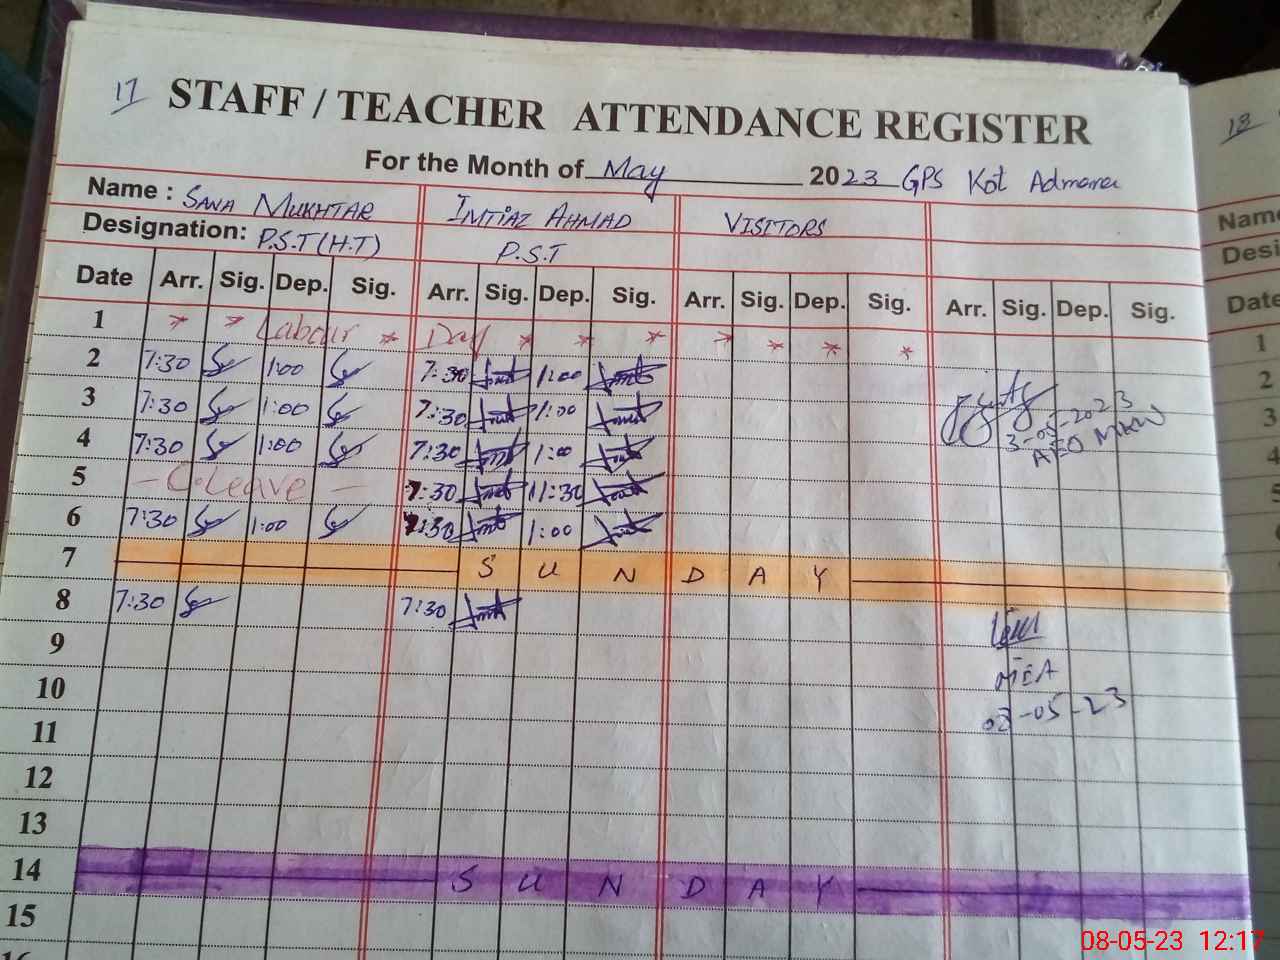 17
STAFF / TEACHER ATTENDANCE REGISTER
For the Month of May 2023 GPS Kot Admana
Name : SANA MUKHTAR IMTIAZ AHMAD VISITORS
Designation: P.S.T (H.T) P.S.T
Date Arr. Sig. Dep. Sig. Arr. Sig. Dep. Sig. Arr. Sig. Dep. Sig. Arr. Sig. Dep. Sig.
1 * * Labour * Day * * * * * * *
2 7:30 1:00 7:30 1:00
3 7:30 1:00 7:30 1:00
3-05-2023
4 7:30 1:00 7:30 1:00
AEO MKW
5 - C.Leave - 7:30 11:30
6 7:30 1:00 7:30 1:00
7 SUNDAY
8 7:30 7:30
9
MEA
10
08-05-23
11
12
13
14 SUNDAY
15
16
18
Name
Desi
Date
1
2
3
4
5
08-05-23 12:17